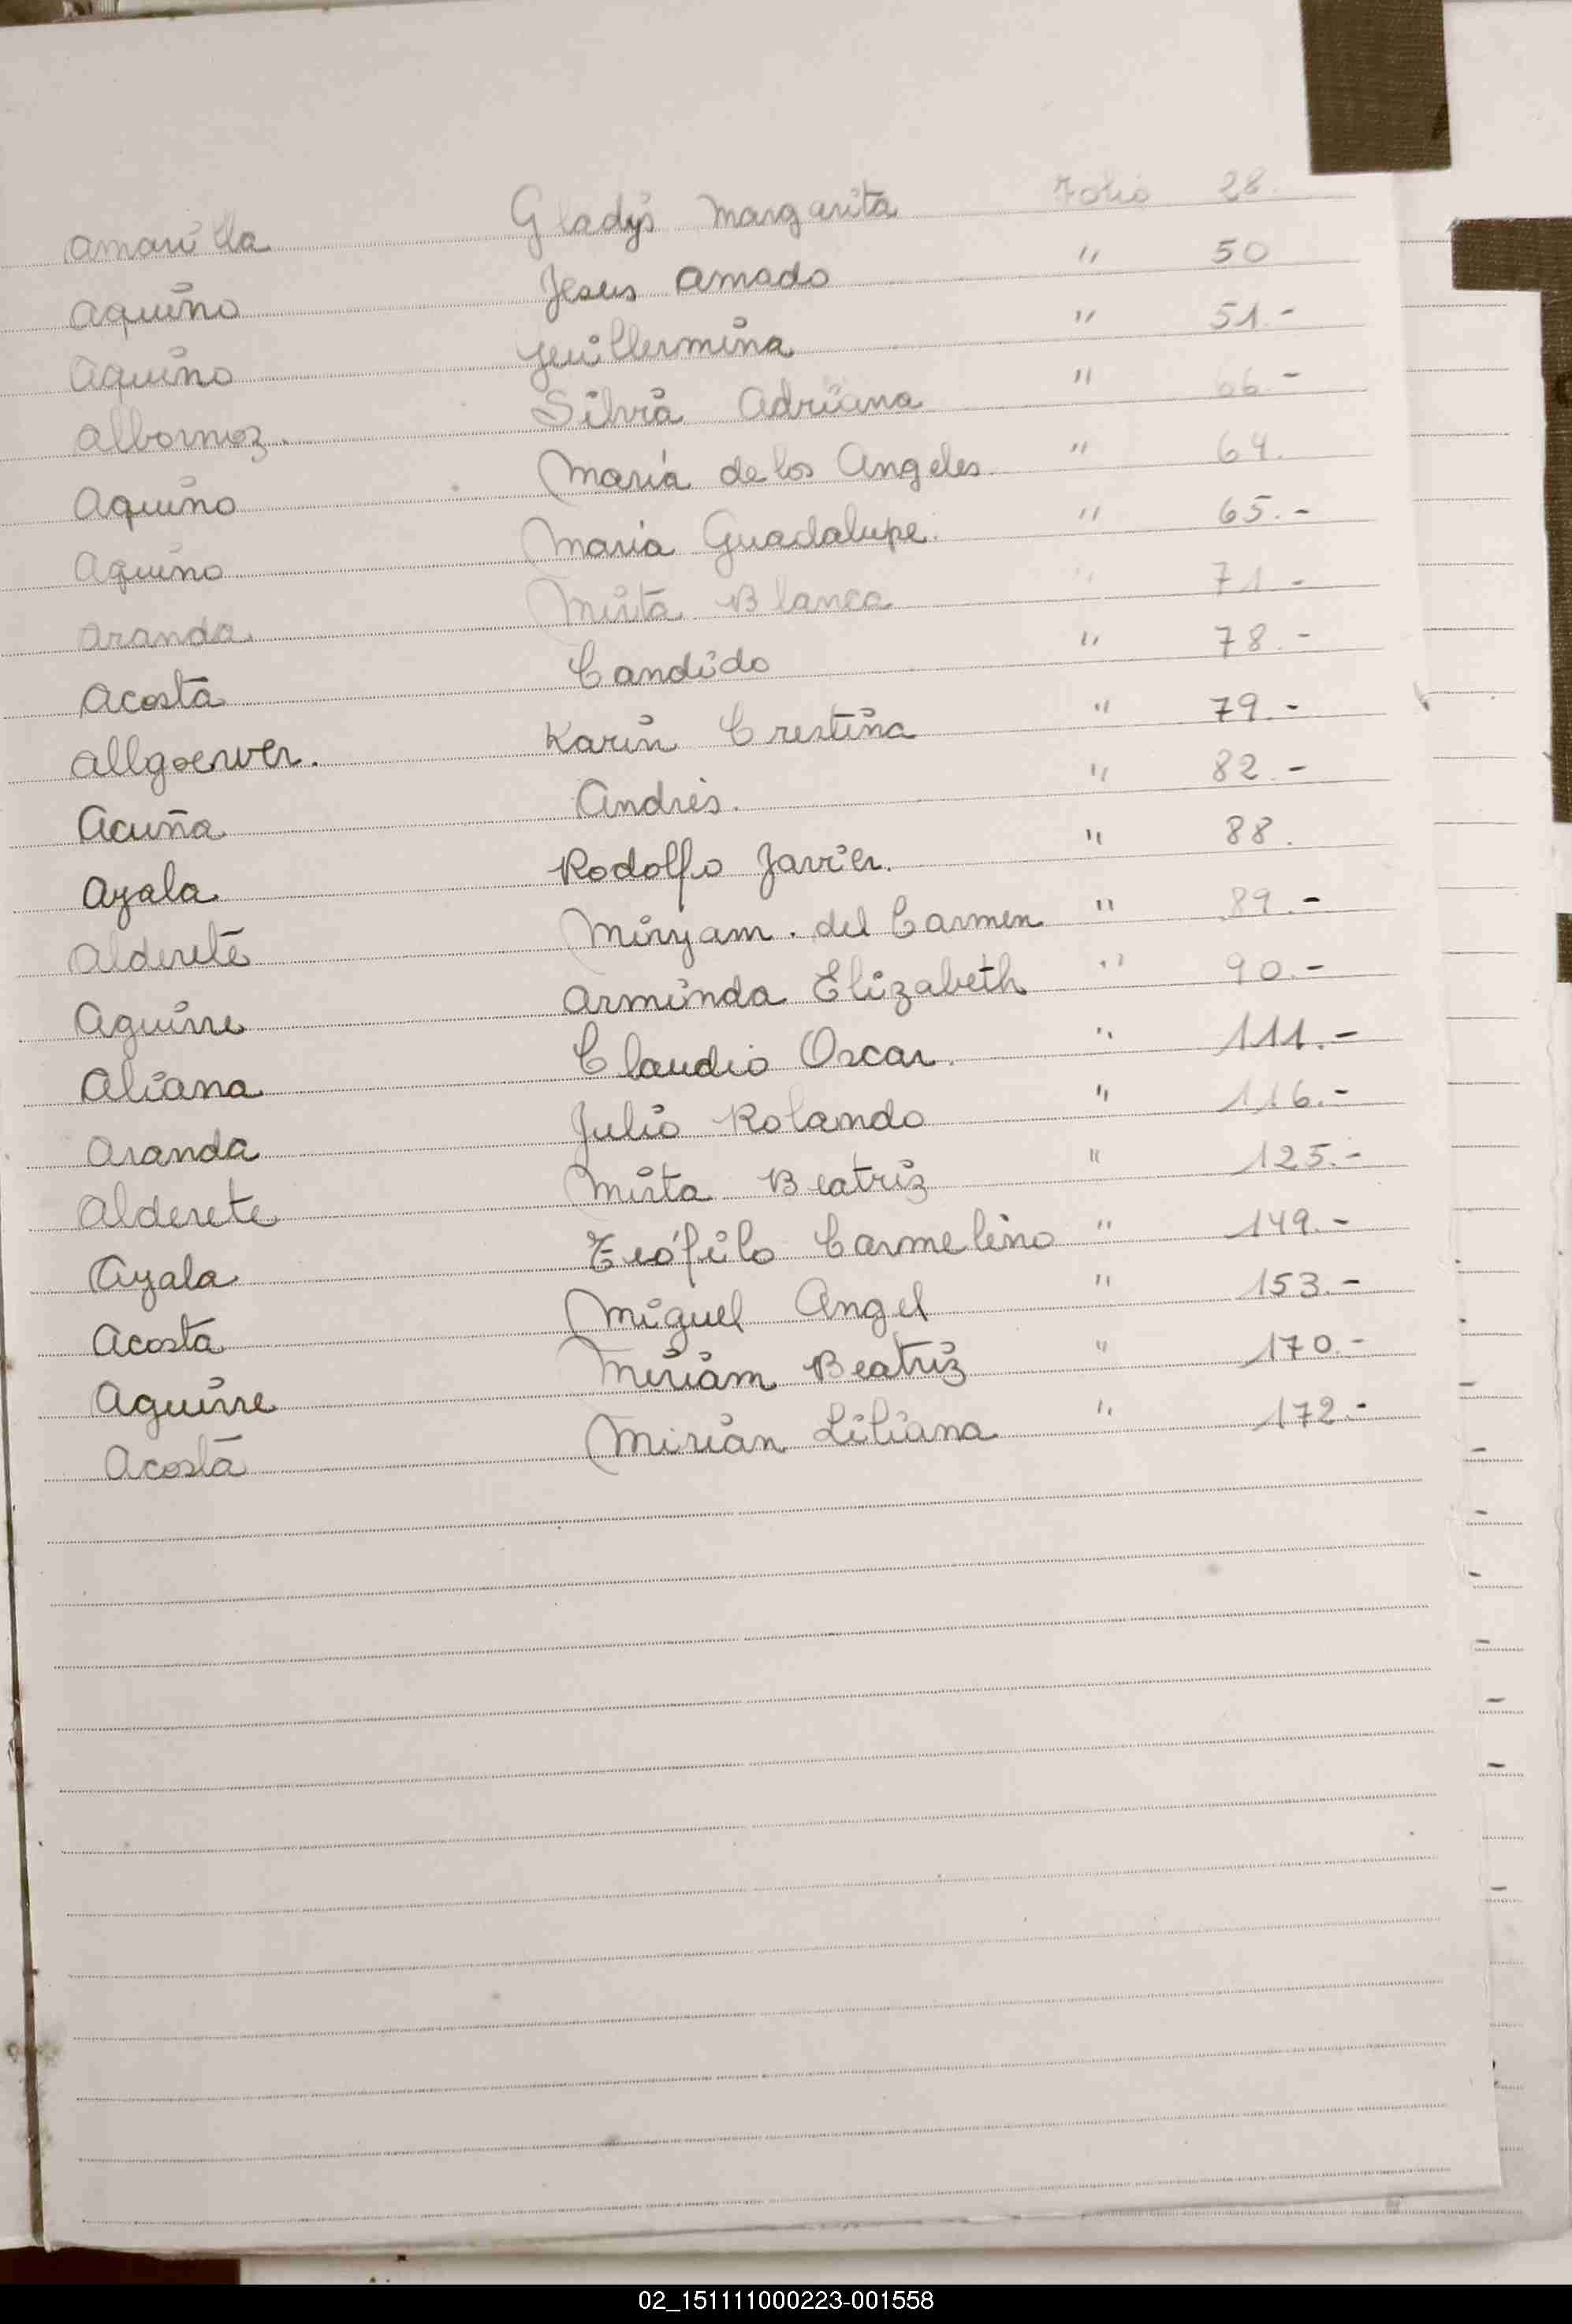 Amarilla Gladys Margarita Folio 28.
Aquino Jesus Amado " 50
Aquino Guillermina " 51.-
Albornoz. Silvia Adriana " 66.-
Aquino Maria de los Angeles " 64.
Aquino Maria Guadalupe. " 65.-
Aranda Mirta Blanca " 71.-
Acosta Candido " 78.-
Allgoerver. Karin Cristina " 79.-
Acuña Andrés. " 82.-
Ayala Rodolfo Javier. " 88.
Alderete Miryam. del Carmen " 89.-
Aguirre Arminda Elizabeth " 90.-
Aliana Claudio Oscar. " 111.-
Aranda Julio Rolando " 116.-
Alderete Mirta Beatriz " 125.-
Ayala Teófilo Carmelino " 149.-
Acosta Miguel Angel " 153.-
Aguirre Miriam Beatriz " 170.-
Acosta Mirian Liliana " 172.-
02_151111000223-001558